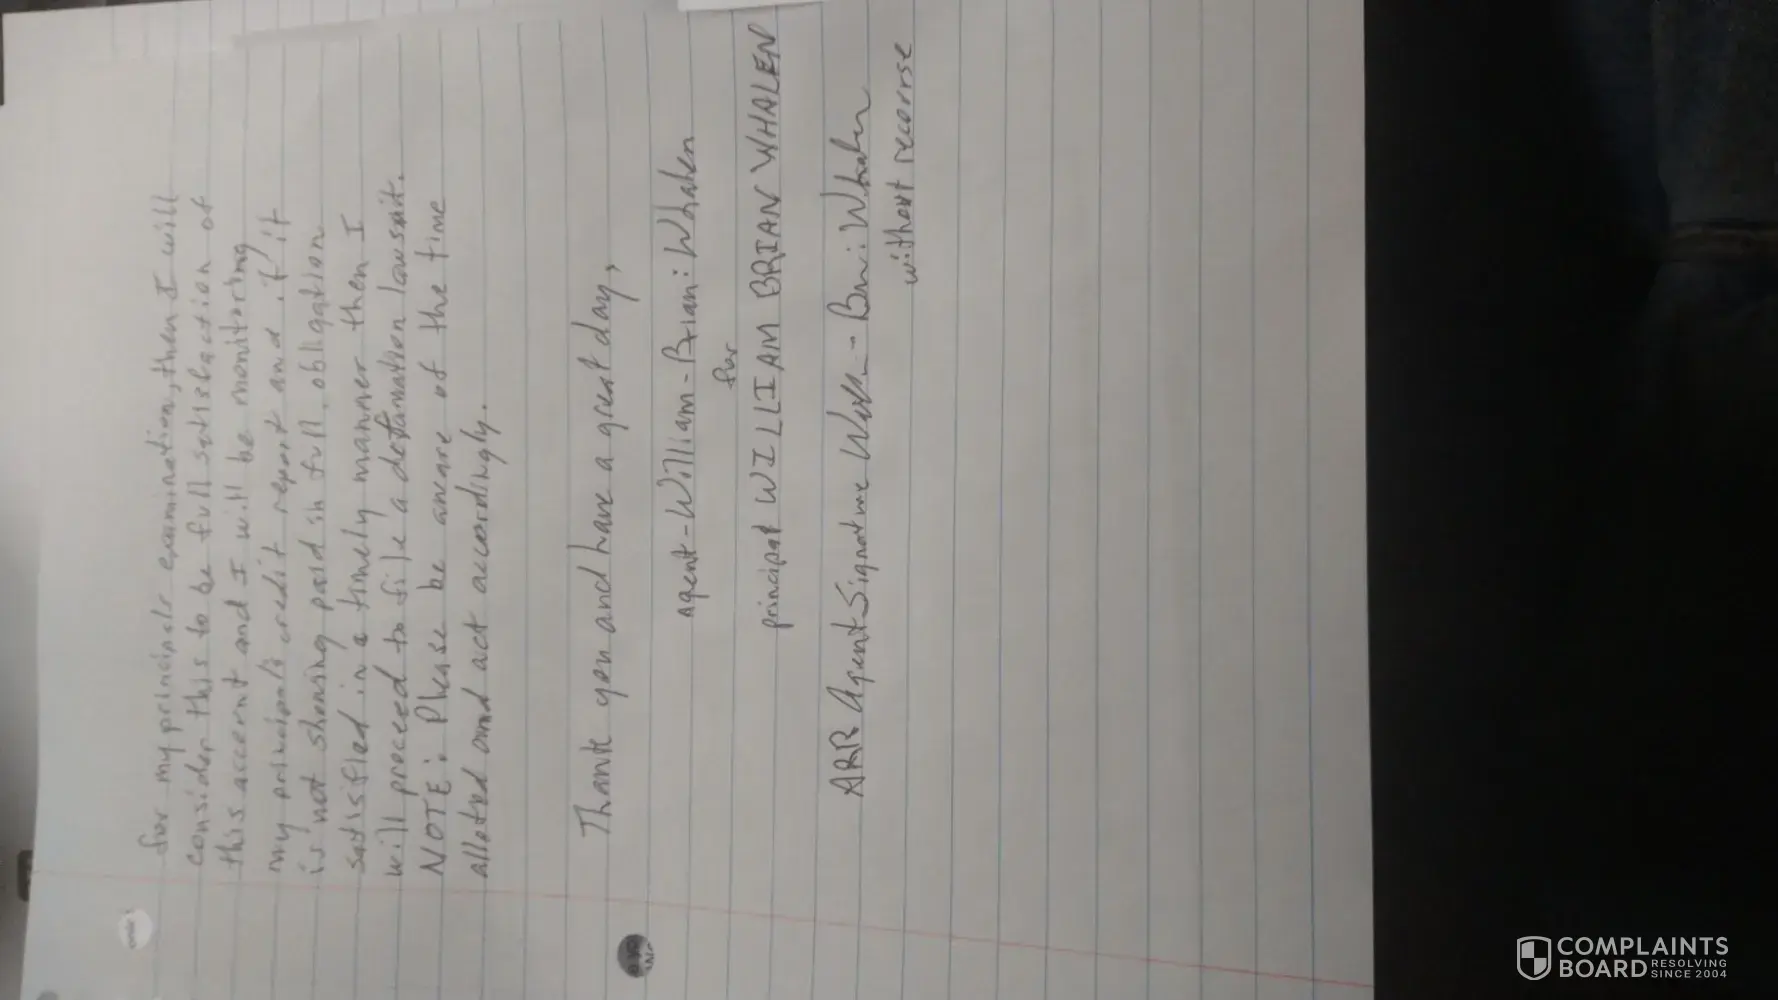 for my principals examination, then I will
consider this to be full satisfaction of
this account and I will be monitoring
my principal's credit report and if it
is not showing paid in full, obligation
satisfied in a timely manner then I
will proceed to file a defamation lawsuit.
NOTE: Please be aware of the time
alloted and act accordingly.
Thank you and have a great day,
agent-William-Brian: Whalen
for
principal WILLIAM BRIAN WHALEN
ARR Agent Signature
without recourse
COMPLAINTS
BOARD RESOLVING
SINCE 2004